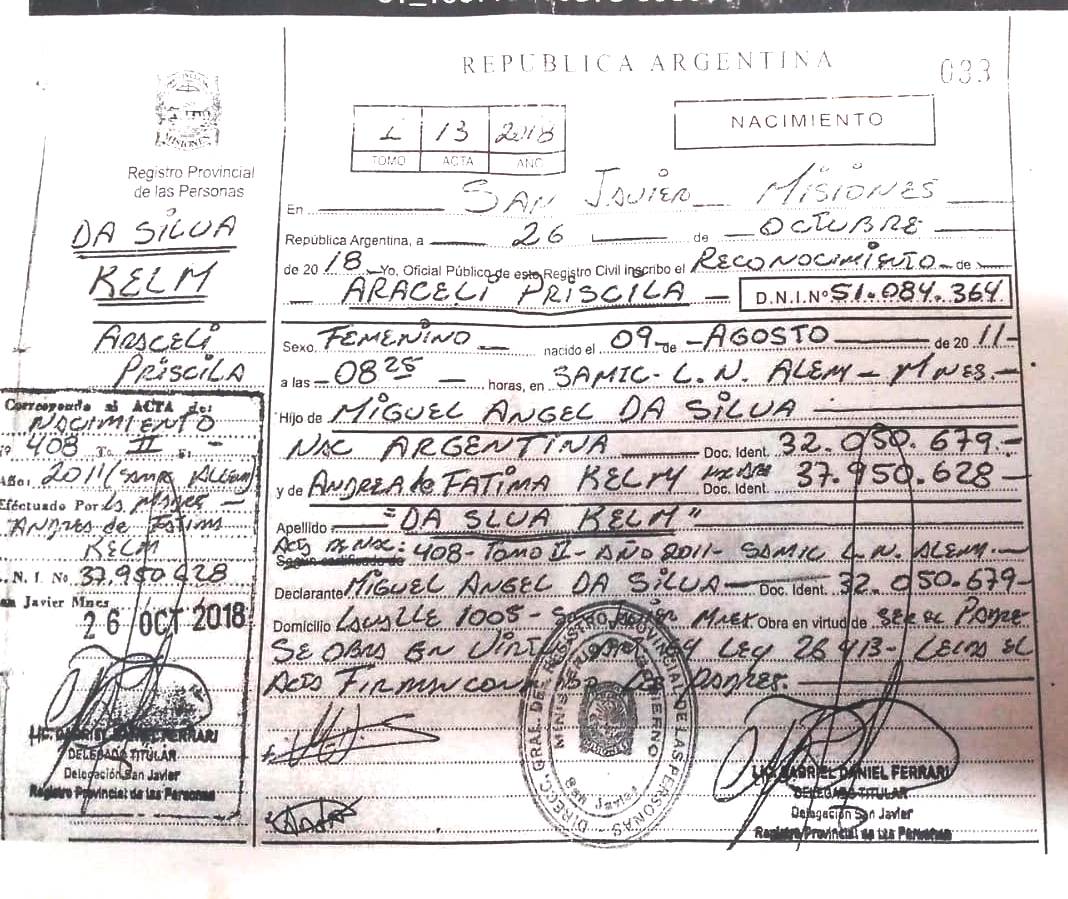 REPUBLICA ARGENTINA
033
NACIMIENTO
L 13 2018
TOMO ACTA AÑO
MISIONES
Registro Provincial
de las Personas
DA SILVA
KELM
ARACELI
PRISCILA
En SAN JAVIER MISIONES
República Argentina, a 26 de OCTUBRE
de 2018 Yo, Oficial Público de este Registro Civil inscribo el RECONOCIMIENTO de
ARACELI PRISCILA D.N.I.Nº 51.084.364
Sexo FEMENINO nacido el 09 de AGOSTO de 2011
a las 08 25 horas, en SAMIC- L. N. ALEM - MNES.-
Hijo de MIGUEL ANGEL DA SILVA
NAC ARGENTINA Doc. Ident. 32.050.679.-
y de ANDREA de FATIMA KELM Doc. Ident. 37.950.628
Apellido "DA SLUA KELM"
Según certificado de
ACTA DE NAC: 408- TOMO II- AÑO 2011- SAMIC L.N. ALEM.-
Declarante MIGUEL ANGEL DA SILVA Doc. Ident. 32.050.679-
Domicilio 1005- Obra en virtud de SER EL PADRE
SE OBRA EN LEY 26 413- EL
ACTA PADRES.
Corresponde al ACTA de:
NACIMIENTO
Nº 408 Tº II Fº -
Año: 2011 ALEM
Efectuado Por: LA MADRE -
ANDREA de FATIMA
KELM
D. N. I. No. 37.950 628
San Javier Mnes
26 OCT 2018
LIC. GABRIEL DANIEL FERRARI
DELEGADO TITULAR
Delegación San Javier
Registro Provincial de las Personas
DIREC. GRAL. DEL REGISTRO PROVINCIAL DE LAS PERSONAS
San Javier
LIC. GABRIEL DANIEL FERRARI
DELEGADO TITULAR
Delegación San Javier
Registro Provincial de las Personas